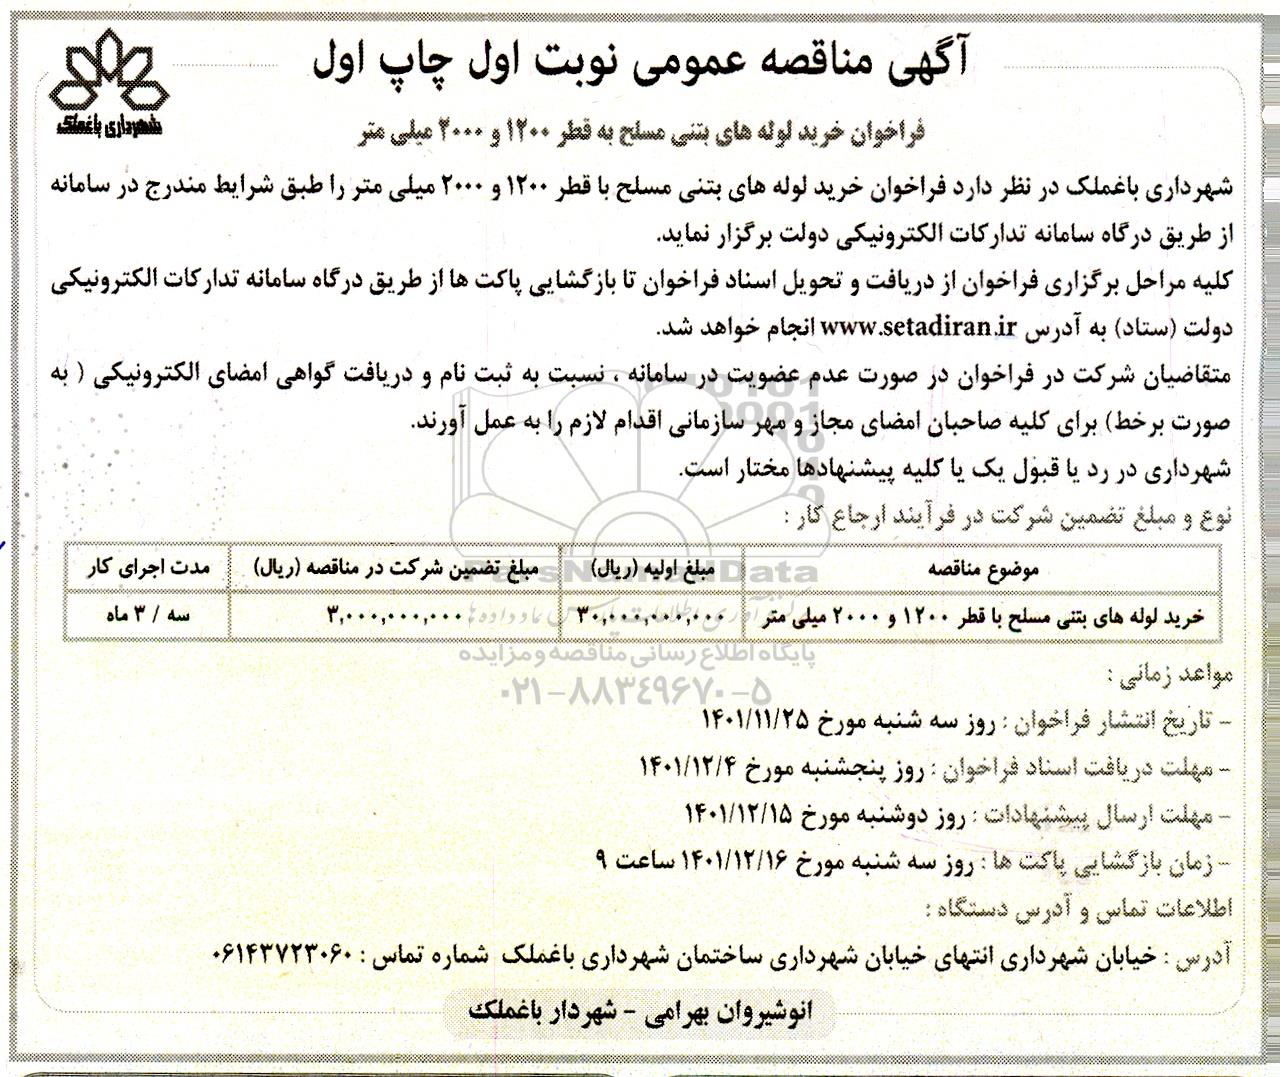 شهرداری باغملک
آگهی مناقصه عمومی نوبت اول چاپ اول
فراخوان خرید لوله های بتنی مسلح به قطر ۱۲۰۰ و ۲۰۰۰ میلی متر
شهرداری باغملک در نظر دارد فراخوان خرید لوله های بتنی مسلح با قطر ۱۲۰۰ و ۲۰۰۰ میلی متر را طبق شرایط مندرج در سامانه
از طریق درگاه سامانه تدارکات الکترونیکی دولت برگزار نماید.
کلیه مراحل برگزاری فراخوان از دریافت و تحویل اسناد فراخوان تا بازگشایی پاکت ها از طریق درگاه سامانه تدارکات الکترونیکی
دولت (ستاد) به آدرس www.setadiran.ir انجام خواهد شد.
متقاضیان شرکت در فراخوان در صورت عدم عضویت در سامانه ، نسبت به ثبت نام و دریافت گواهی امضای الکترونیکی ( به
صورت برخط) برای کلیه صاحبان امضای مجاز و مهر سازمانی اقدام لازم را به عمل آورند.
شهرداری در رد یا قبول یک یا کلیه پیشنهادها مختار است.
نوع و مبلغ تضمین شرکت در فرآیند ارجاع کار :
موضوع مناقصه مبلغ اولیه (ریال) مبلغ تضمین شرکت در مناقصه (ریال) مدت اجرای کار
خرید لوله های بتنی مسلح با قطر ۱۲۰۰ و ۲۰۰۰ میلی متر ۳۰,۰۰۰,۰۰۰,۰۰۰ ۳,۰۰۰,۰۰۰,۰۰۰ سه / ۳ ماه
ParsNamadData
پایگاه اطلاع رسانی مناقصه و مزایده
۰۲۱-۸۸۳۴۹۶۷۰-۵
مواعد زمانی :
- تاریخ انتشار فراخوان : روز سه شنبه مورخ ۱۴۰۱/۱۱/۲۵
- مهلت دریافت اسناد فراخوان : روز پنجشنبه مورخ ۱۴۰۱/۱۲/۴
- مهلت ارسال پیشنهادات : روز دوشنبه مورخ ۱۴۰۱/۱۲/۱۵
- زمان بازگشایی پاکت ها : روز سه شنبه مورخ ۱۴۰۱/۱۲/۱۶ ساعت ۹
اطلاعات تماس و آدرس دستگاه :
آدرس : خیابان شهرداری انتهای خیابان شهرداری ساختمان شهرداری باغملک شماره تماس : ۰۶۱۴۳۷۲۳۰۶۰
انوشیروان بهرامی - شهردار باغملک